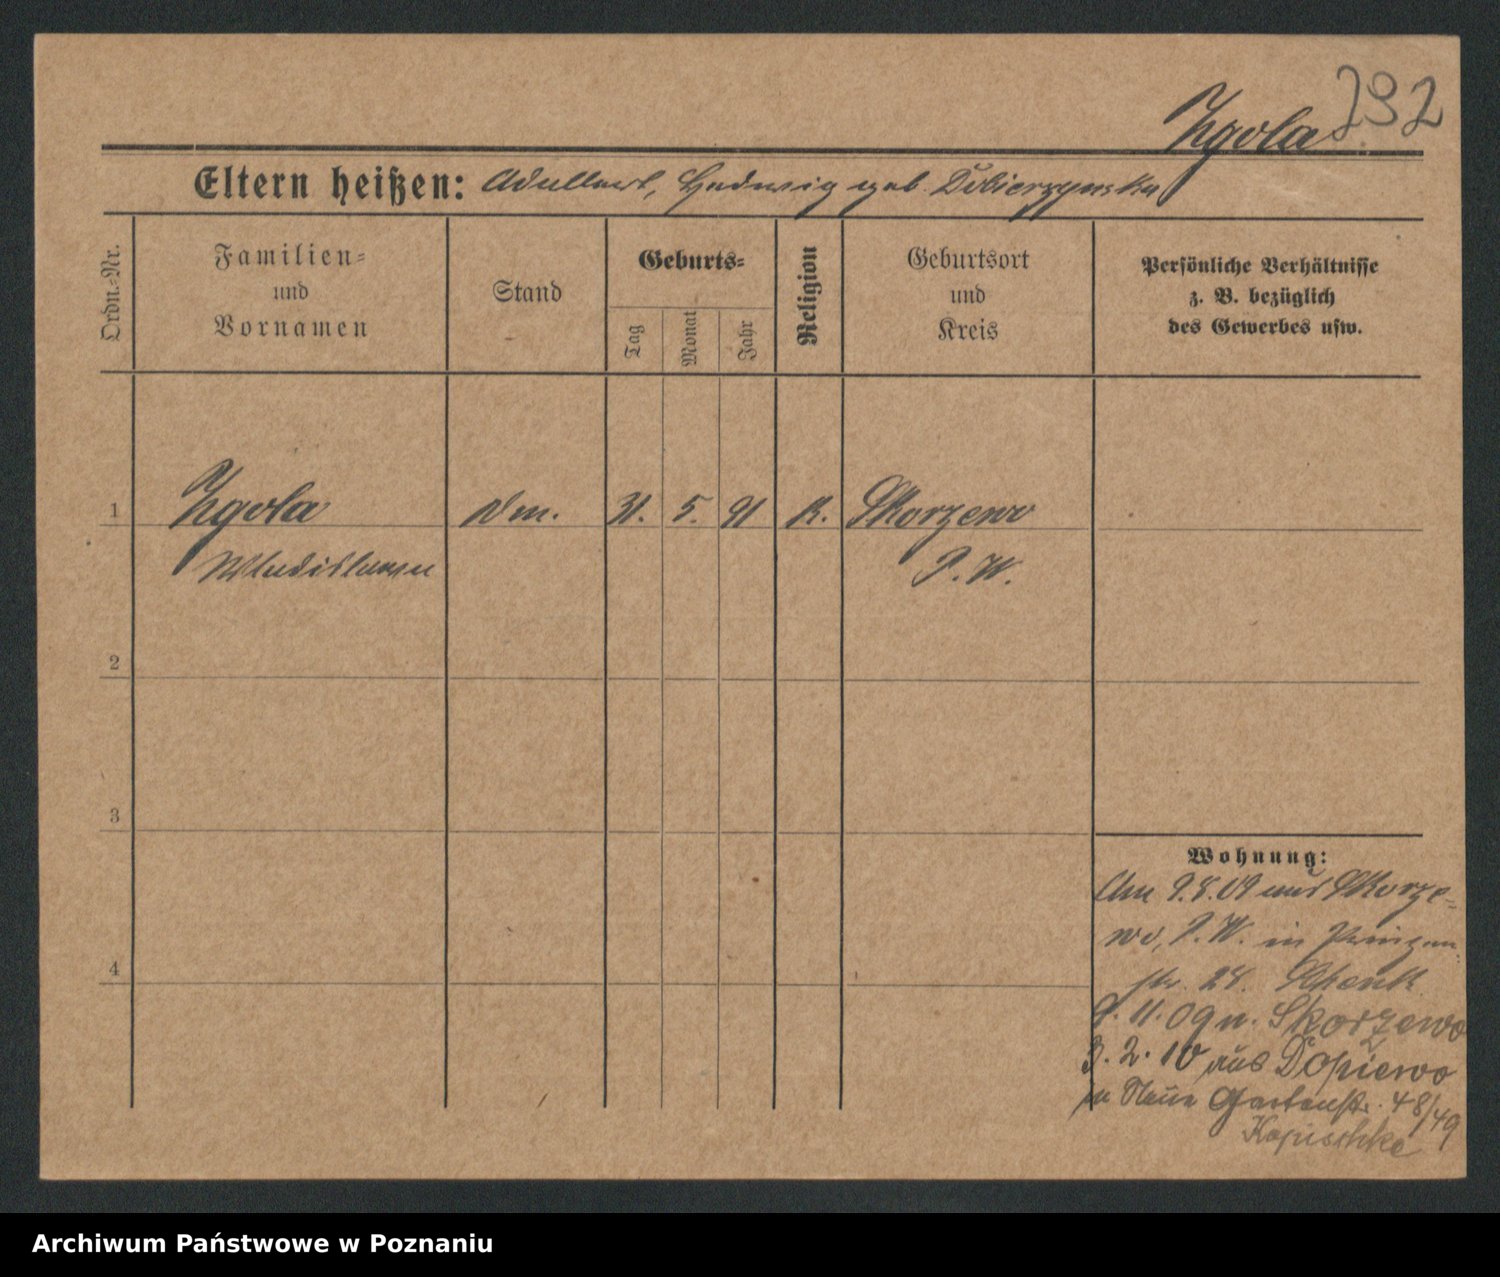 292
Zgola
Eltern heißen: Adalbert, Hedwig geb. Dobierzynska
Ordn.-Nr.
Familien-
und
Vornamen
Stand
Geburts-
Tag
Monat
Jahr
Religion
Geburtsort
und
Kreis
Persönliche Verhältnisse
z. B. bezüglich
des Gewerbes usw.
1
Zgola
31.
5.
91
K.
Skorzewo
Wladislawa
P. W.
2
3
4
Wohnung:
Am 9.8.09 aus Skorze-
wo, P. W. in
str. 28. Schenk
9. 11. 09 n. Skorzewo
3. 2. 10 aus Dopiewo
n Neue Gartenstr. 48/49
Kopischke
Archiwum Państwowe w Poznaniu